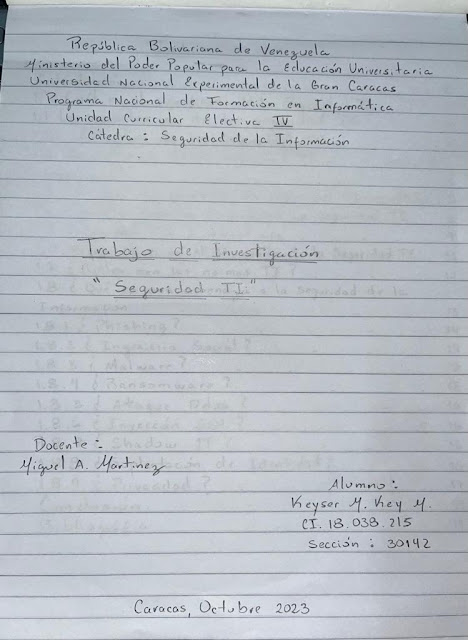 República Bolivariana de Venezuela
Ministerio del Poder Popular para la Educación Universitaria
Universidad Nacional Experimental de la Gran Caracas
Programa Nacional de Formación en Informática
Unidad Curricular Electiva IV
Cátedra : Seguridad de la Información
Trabajo de Investigación
"Seguridad TI"
Docente :
Miguel A. Martinez
Alumno :
Keyser M. Key M.
CI. 18.038.215
Sección : 30142
Caracas, Octubre 2023